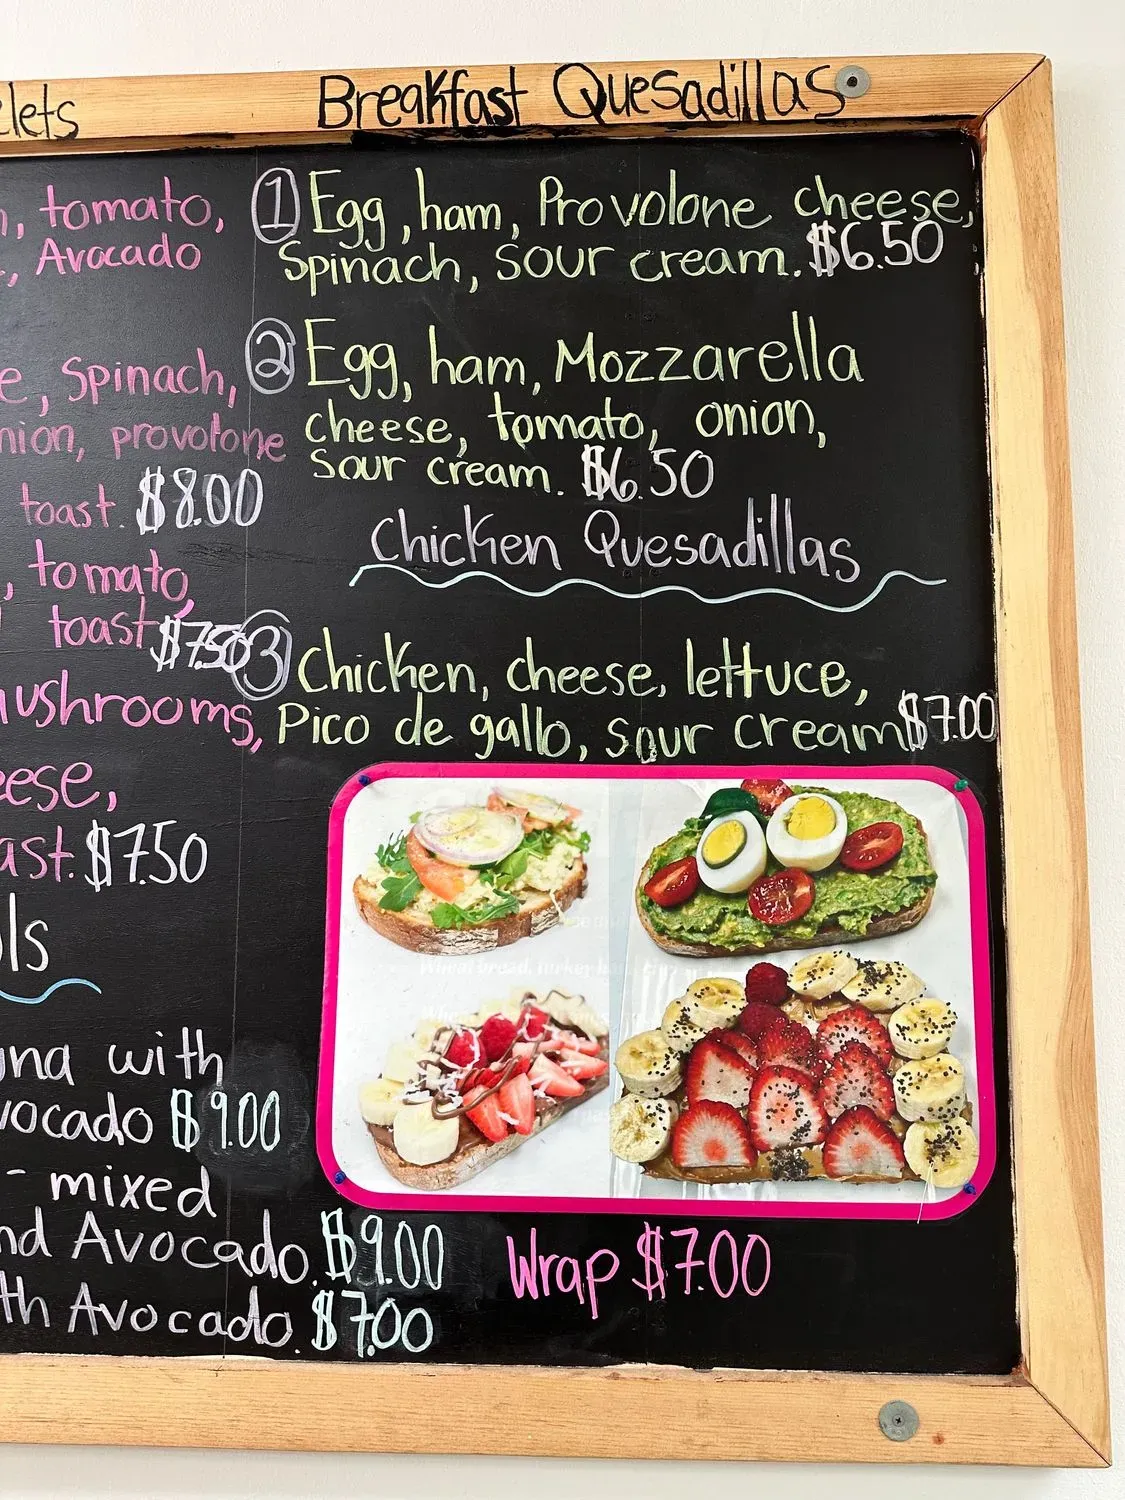 Breakfast Quesadillas
tomato,
Avocado
Spinach,
provolone
toast. $8.00
tomato,
toast $7.50
$7.50
with
$9.00
mixed
Avocado. $9.00
Avocado. $7.00
① Egg, ham, Provolone cheese,
Spinach, sour cream. $6.50
② Egg, ham, Mozzarella
cheese, tomato, onion,
sour cream. $6.50
Chicken Quesadillas
③ Chicken, cheese, lettuce,
Pico de gallo, sour cream $7.00
Wrap $7.00